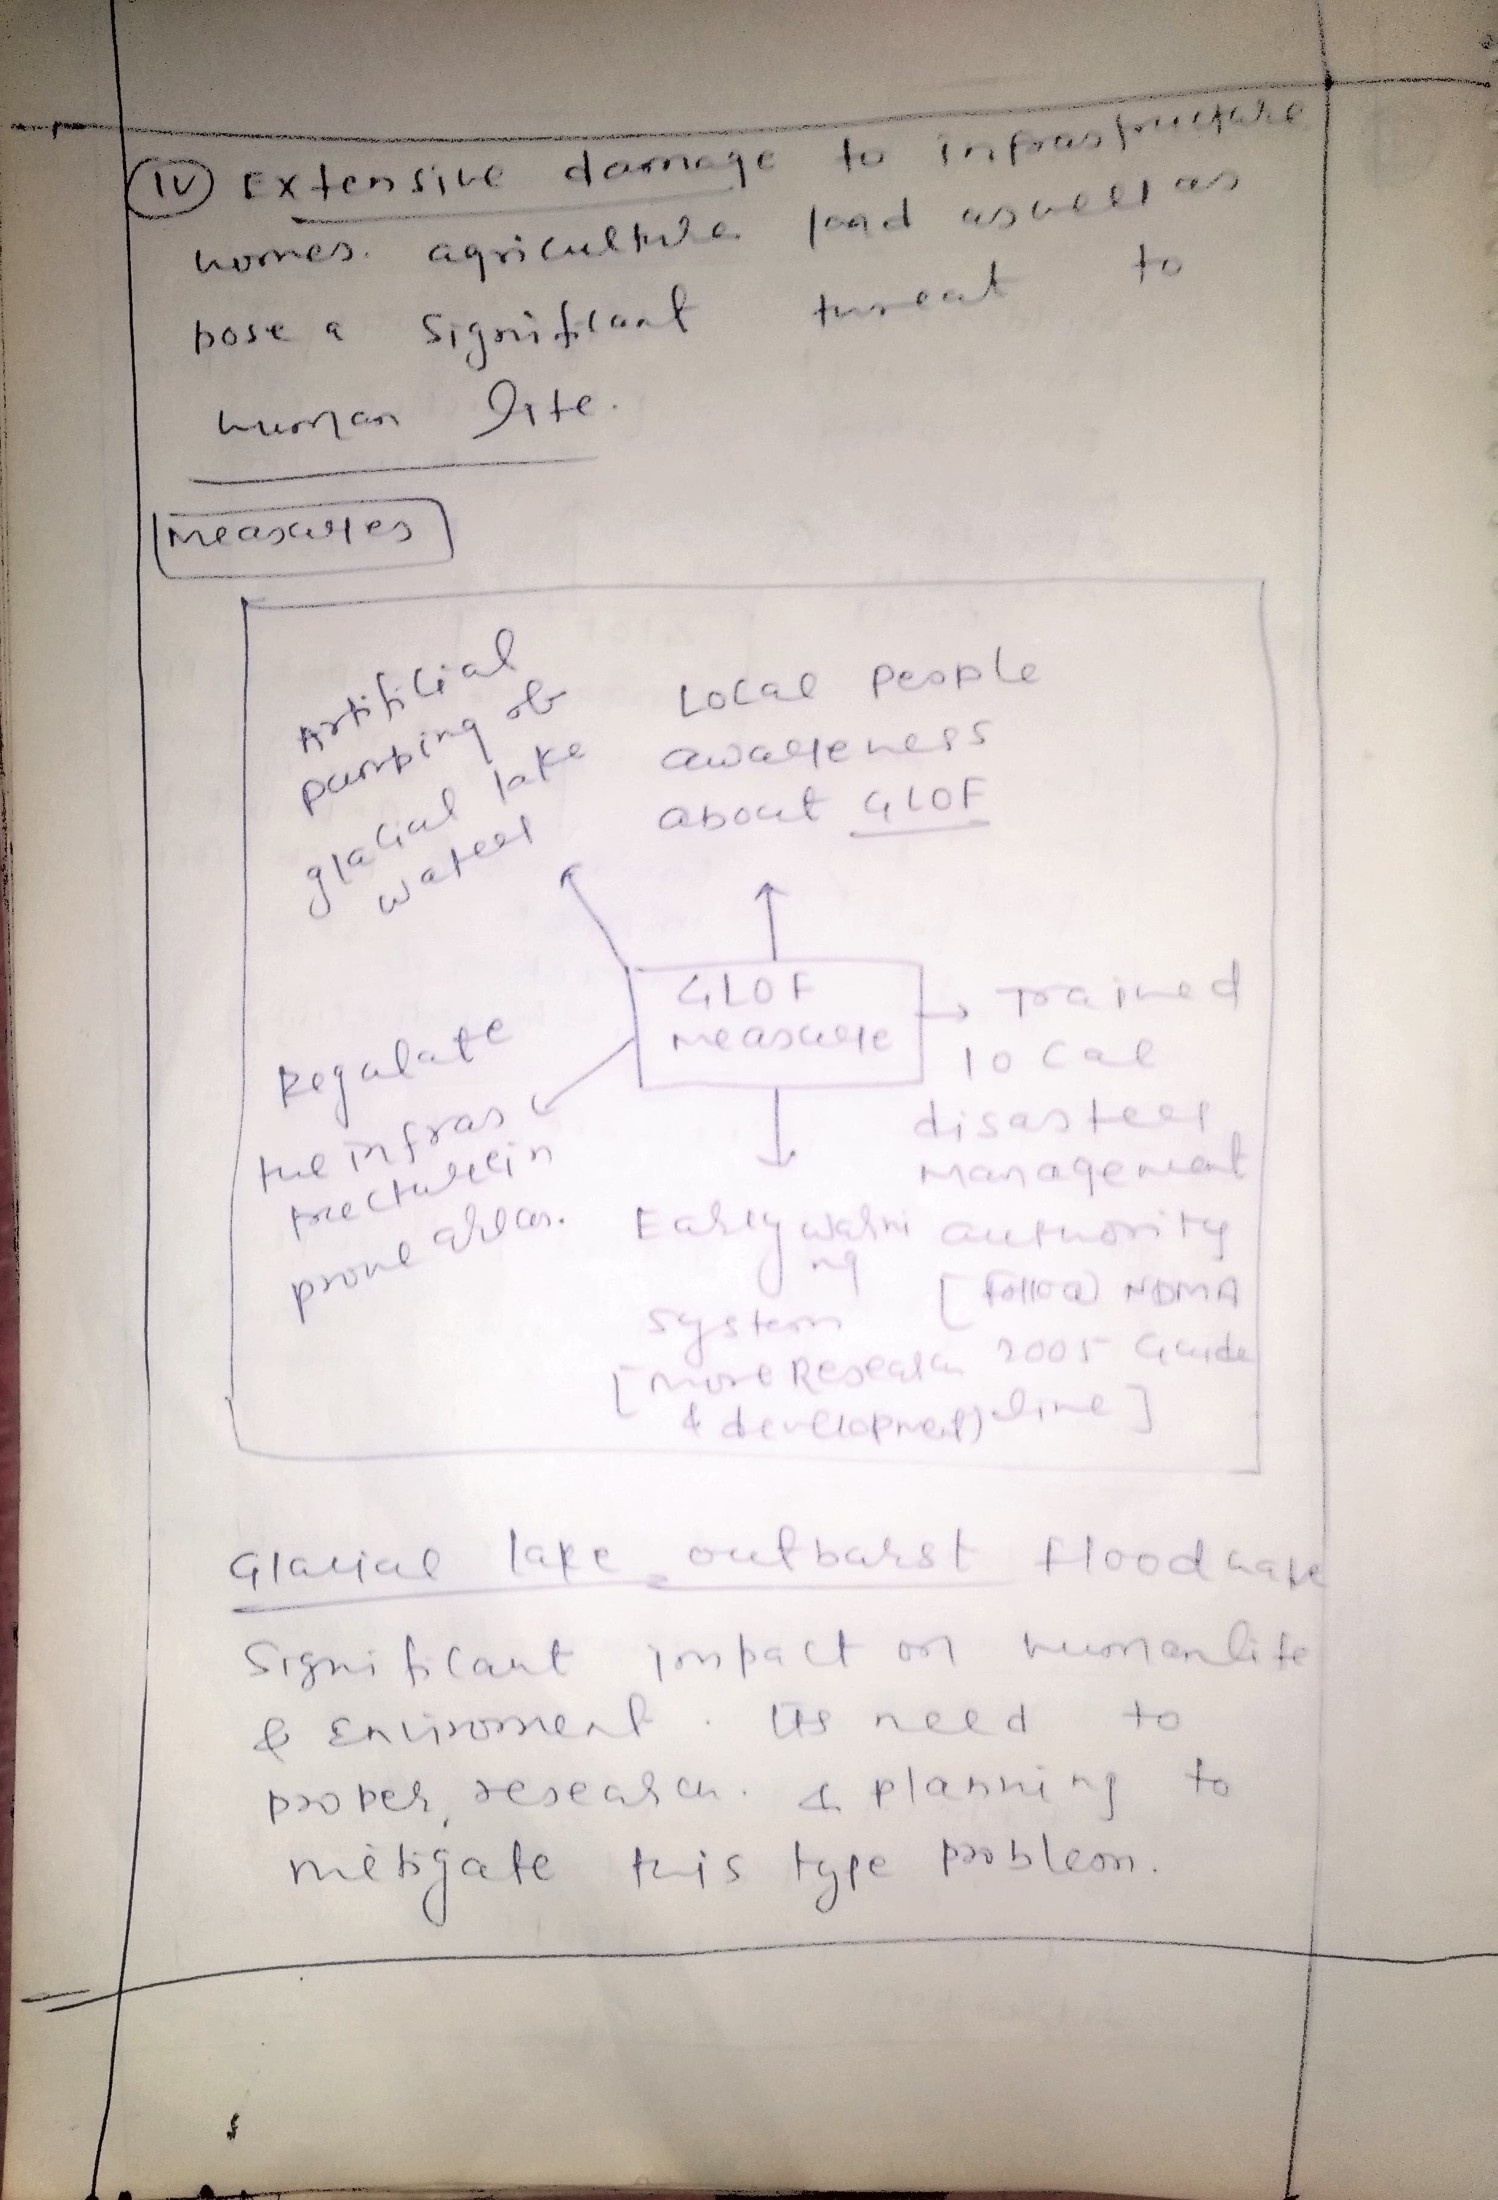 (iv) Extensive damage to infrastructure
homes. agriculture land as well as
pose a significant threat to
human life.
Measures
Artificial
pumping of
glacial lake
water
Local People
awareness
about GLOF
GLOF
measure
Trained
local
disaster
management
authority
[follow NDMA
2005 Guide
line]
Regulate
the infras
tructure in
prone areas.
Early warni
ng
system
[more Research
& development]
Glacial lake outburst flood have
Significant impact on human life
& Enviroment. Its need to
proper research. & planning to
mitigate this type problem.